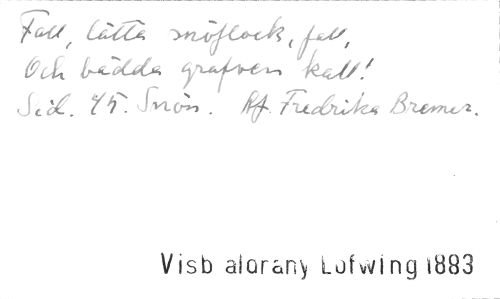 Fall, lätta snöflock, fall,
Och bädda grafven kall!
Sid. 45. Snön. Af Fredrika Bremer.
Visb alorany Lofwing 1883